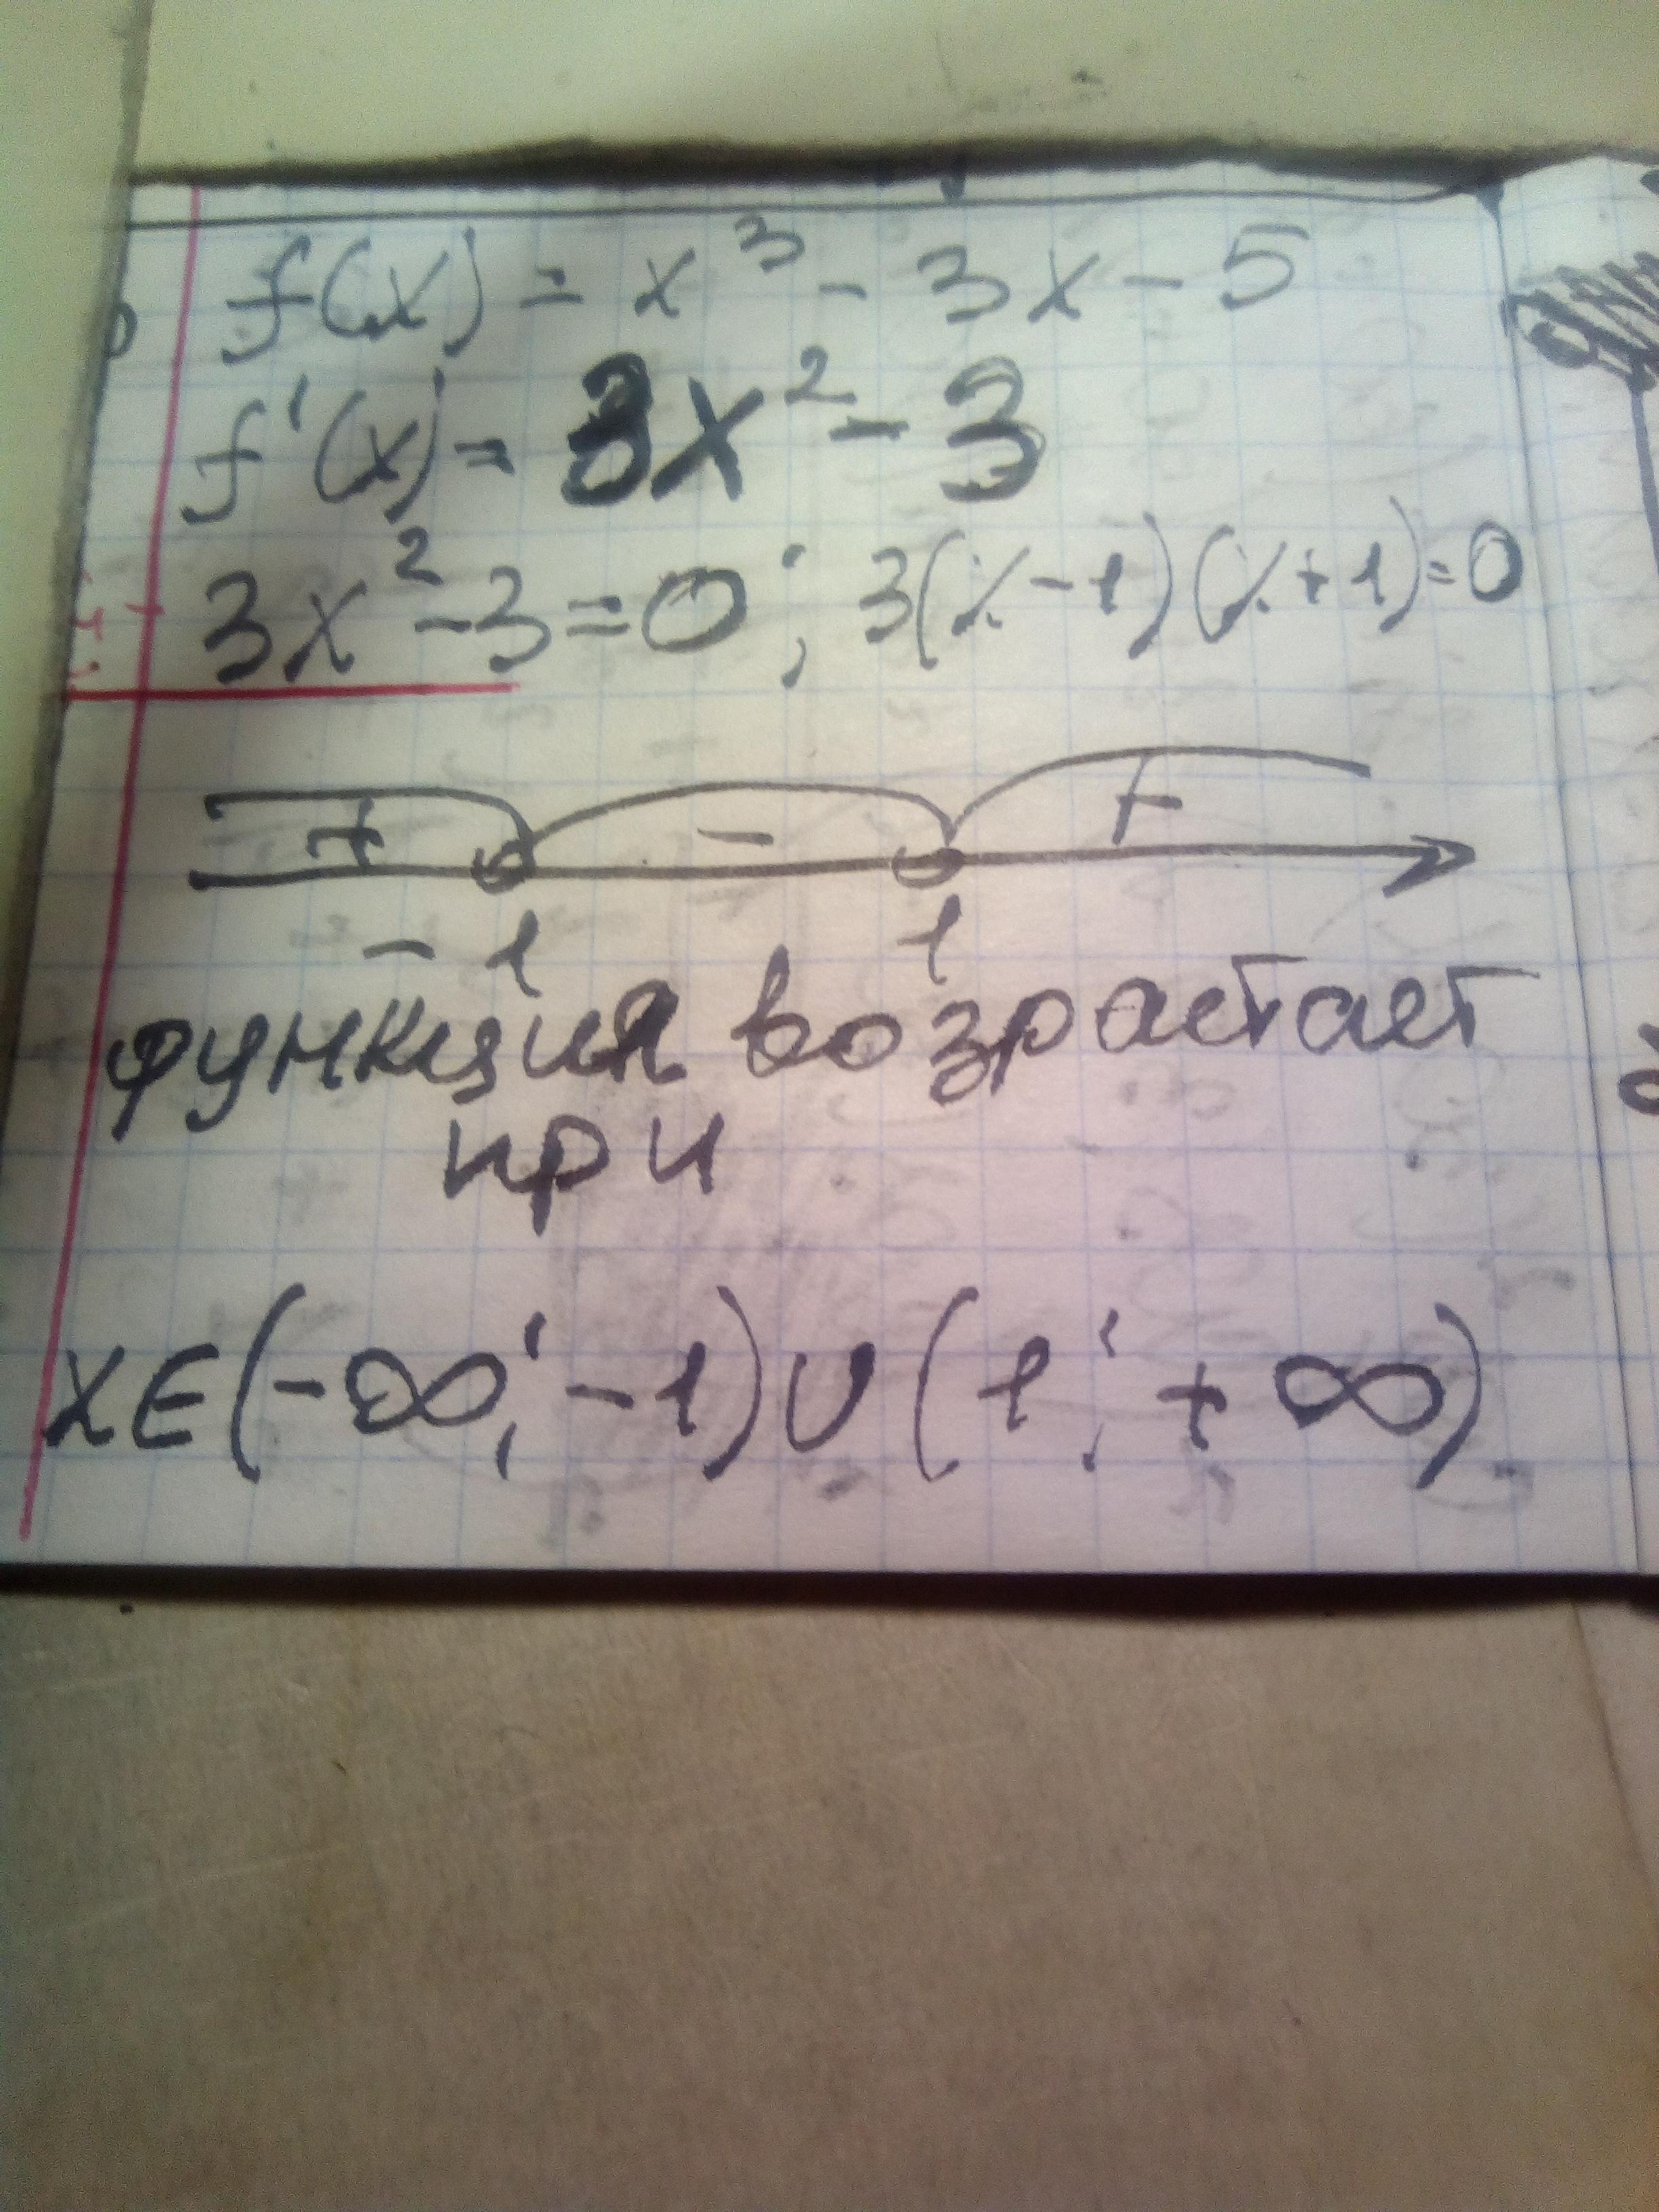 f(x) = x³ - 3x - 5
f'(x) = 3x² - 3
3x² - 3 = 0; 3(x - 1)(x + 1) = 0
+ - +
-1 1
функция возрастает
при
x∈(-∞; -1)∪(1; +∞)